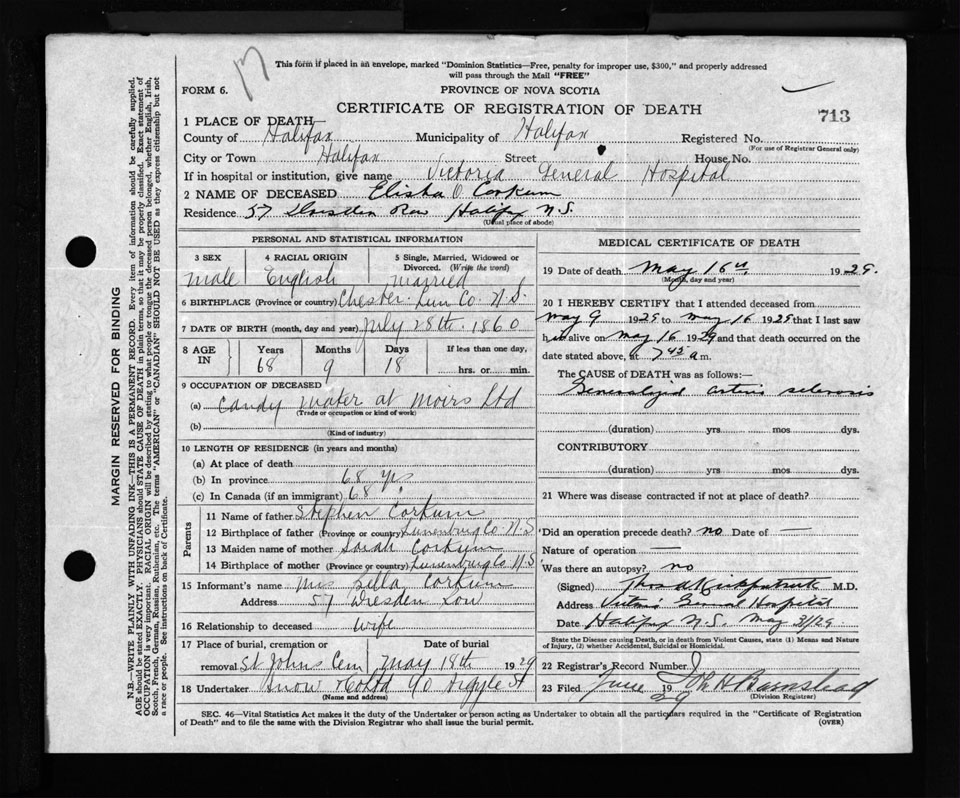 13
This form if placed in an envelope, marked "Dominion Statistics—Free, penalty for improper use, $300," and properly addressed
will pass through the Mail "FREE"
FORM 6.
PROVINCE OF NOVA SCOTIA
CERTIFICATE OF REGISTRATION OF DEATH
713
1 PLACE OF DEATH—
County of Halifax Municipality of Halifax Registered No.
(For use of Registrar General only)
City or Town Halifax Street House No.
If in hospital or institution, give name Victoria General Hospital
2 NAME OF DECEASED Elisha O Corkum
Residence 57 Dresden Row Halifax N.S.
(Usual place of abode)
PERSONAL AND STATISTICAL INFORMATION
3 SEX 4 RACIAL ORIGIN 5 Single, Married, Widowed or Divorced. (Write the word)
Male English Married
6 BIRTHPLACE (Province or country) Chester Lun Co. N.S.
7 DATE OF BIRTH (month, day and year) July 28th 1860
8 AGE IN Years Months Days If less than one day,
68 9 18 hrs. or min.
9 OCCUPATION OF DECEASED
(a) Candy Mater at Moirs Ltd
(Trade or occupation or kind of work)
(b)
(Kind of industry)
10 LENGTH OF RESIDENCE (in years and months)
(a) At place of death
(b) In province 68 yrs
(c) In Canada (if an immigrant) 68
Parents
11 Name of father Stephen Corkum
12 Birthplace of father (Province or country) Lunenburg Co. N.S
13 Maiden name of mother Sarah Corkum
14 Birthplace of mother (Province or country) Lunenburg Co N.S
15 Informant's name Mrs Zella Corkum
Address 57 Dresden Row
16 Relationship to deceased Wife
17 Place of burial, cremation or removal Date of burial
St Johns Cem May 18th 1929
18 Undertaker Snow & Co Ltd 90 Argyle St
(Name and address)
MEDICAL CERTIFICATE OF DEATH
19 Date of death May 16th 1929.
(Month, day and year)
20 I HEREBY CERTIFY that I attended deceased from
May 9 1929 to May 16 1929 that I last saw
him alive on May 16 1929 and that death occurred on the
date stated above, at 7 45 a m.
The CAUSE OF DEATH was as follows:—
Generalized arterio sclerosis
(duration) yrs. mos dys.
CONTRIBUTORY
(duration) yrs. mos. dys.
21 Where was disease contracted if not at place of death?
Did an operation precede death? no Date of —
Nature of operation —
Was there an autopsy? no
(Signed) Thos A Kirkpatrick M.D.
Address Victoria General Hospital
Date Halifax N.S. May 31/29
State the Disease causing Death, or in death from Violent Causes, state (1) Means and Nature
of Injury, (2) whether Accidental, Suicidal or Homicidal.
22 Registrar's Record Number
23 Filed June 1929 John H Barnstead
(Division Registrar)
SEC. 46—Vital Statistics Act makes it the duty of the Undertaker or person acting as Undertaker to obtain all the particulars required in the "Certificate of Registration
of Death" and to file the same with the Division Registrar who shall issue the burial permit.
(OVER)
MARGIN RESERVED FOR BINDING
N.B.—WRITE PLAINLY WITH UNFADING INK—THIS IS A PERMANENT RECORD. Every item of information should be carefully supplied.
AGE should be stated EXACTLY. PHYSICIANS should STATE CAUSE OF DEATH in plain terms, so that it may be properly classified. Exact statement of
OCCUPATION is very important. RACIAL ORIGIN will be described by stating to what people or tongue the deceased person belonged, whether English, Irish,
Scotch, French, German, Russian, Ruthenian, etc. The terms "AMERICAN" or "CANADIAN" SHOULD NOT BE USED as they express citizenship but not
a race or people. See instructions on back of Certificate.